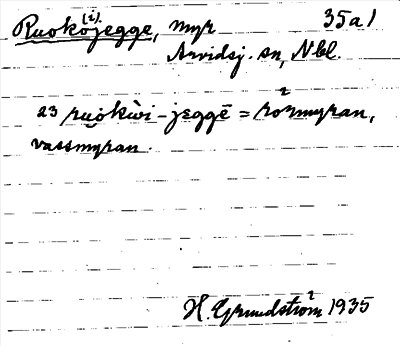 Ruokojegge, myr 35a1
(i)
Arvidsj. sn, Nbl.
23 ruokẁi-jeggē = rörmyran,
vassmyran.
H. Grundström 1935